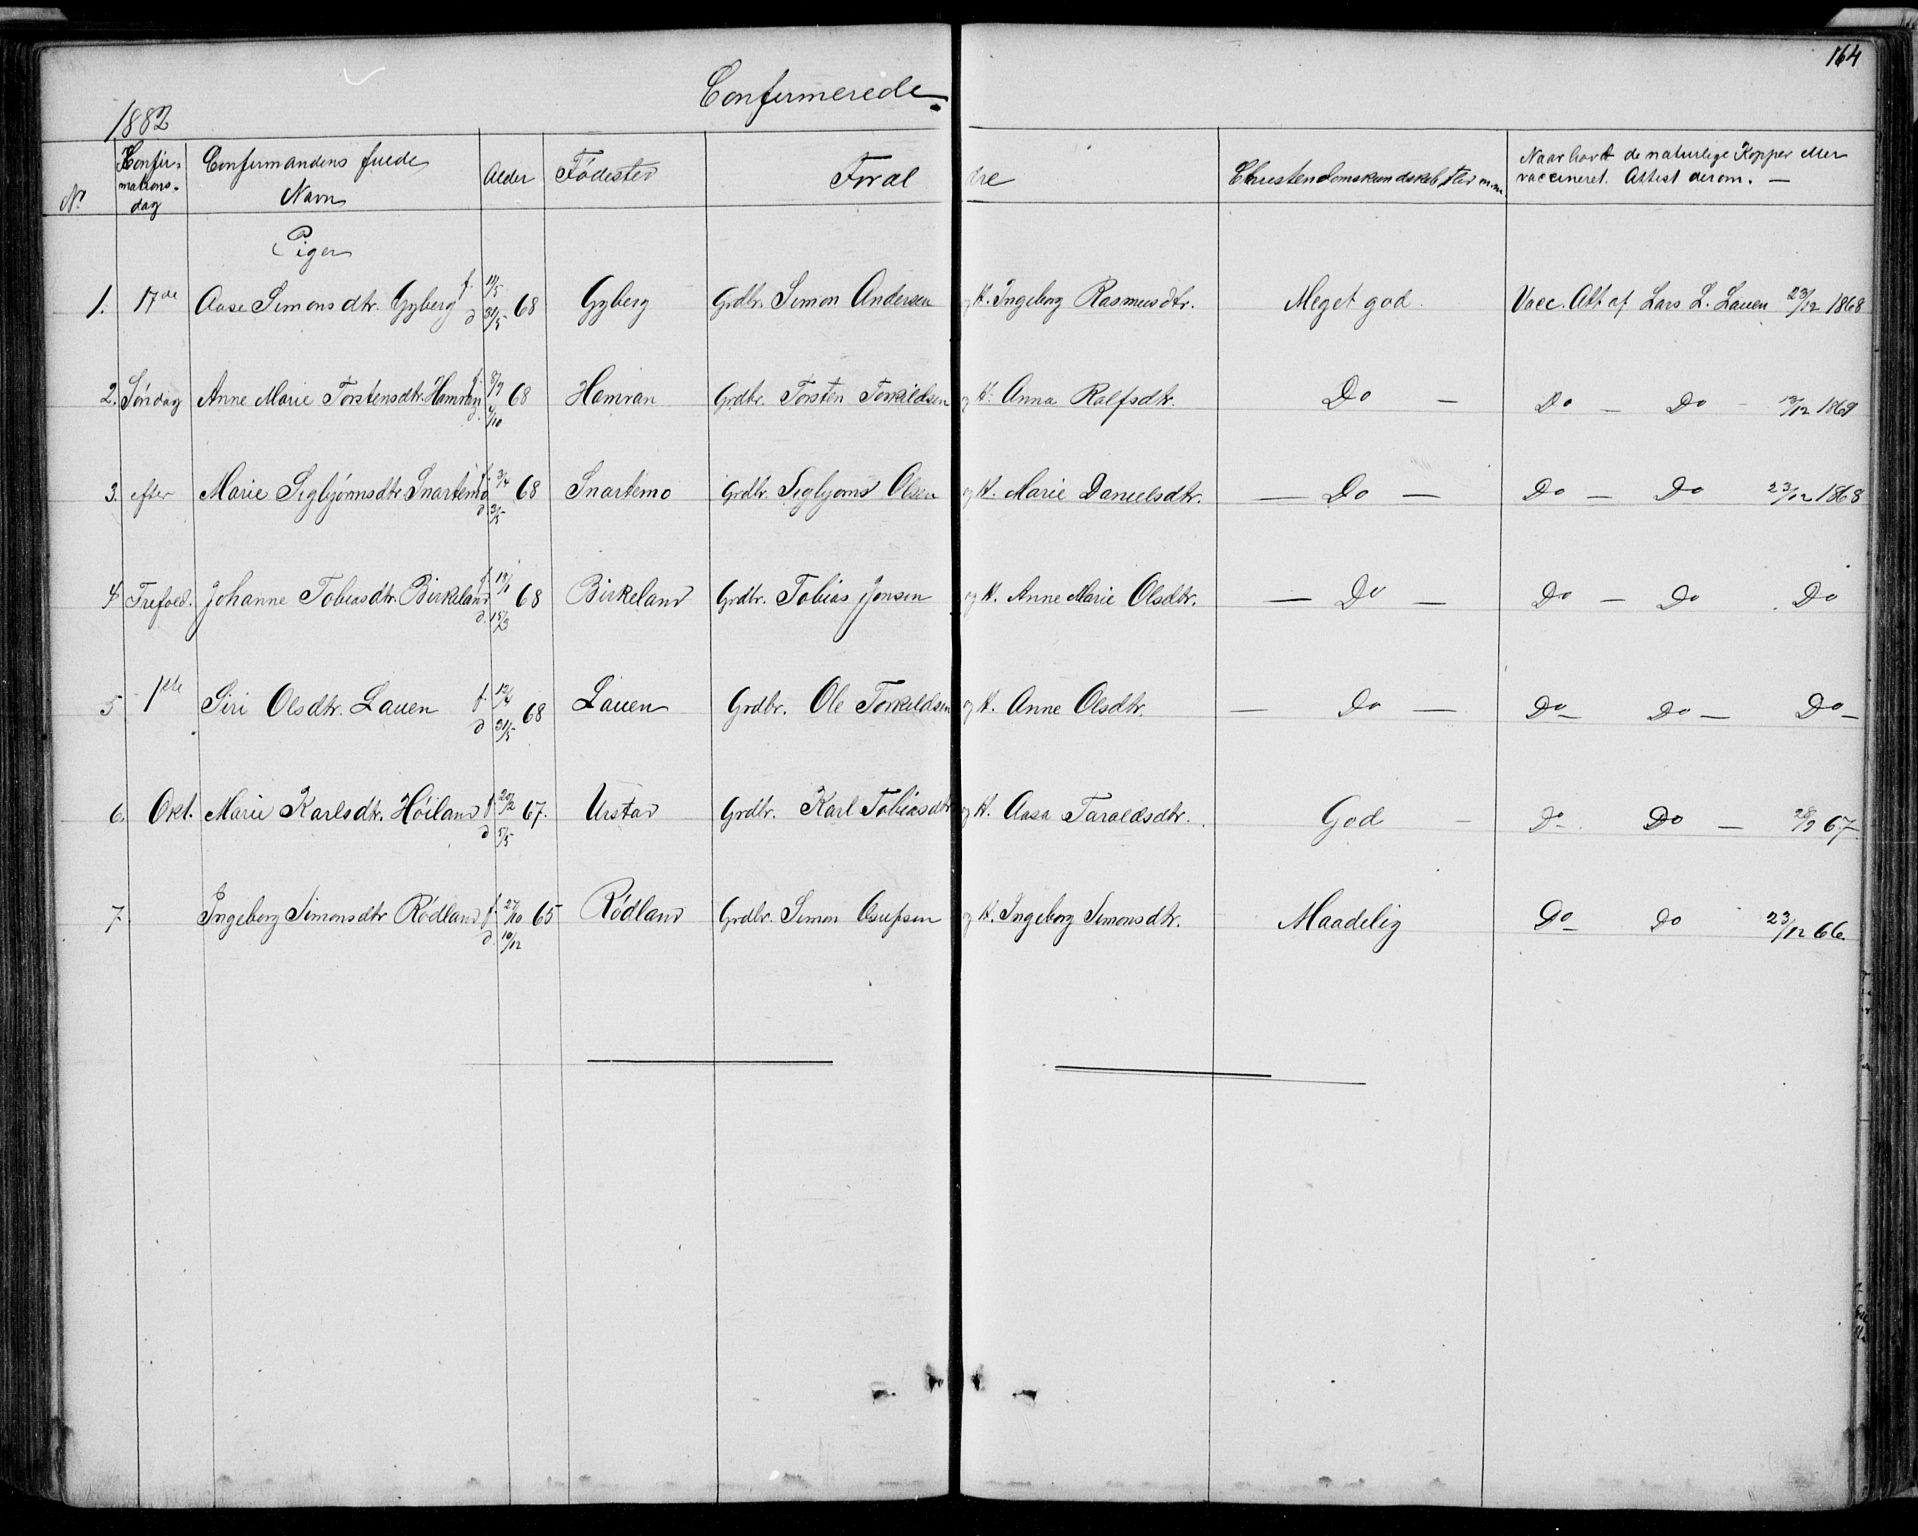 164
Confirmerede
1882
No. Confirmationsdag Confirmandens fulde Navn Alder Fødested Forældre Christendomskundskab, Flid m.m. Naar havt de naturlige Kopper eller vaccineret. Attest derom. —
Piger
1. 17de Aase Simonsdtr. Gyberg f. d. 31/5 68 Gyberg Grdbr. Simon Andersen og K. Ingeborg Rasmusdtr. Meget god. Vacc. Att. af Lars L. Lauen 23/12 1868
2. Søndag Anne Marie Torstensdtr. Hamran f. 8/9 d. 4/10 68 Hamran Grdbr. Torsten Torkildsen og K. Anna Ralfsdtr. Do — Do — Do - 1869
3. efter Marie Sigbjørnsdtr. Snartemo f. 3/4 d. 3/5 68 Snartemo Grdbr. Sigbjørns Olsen og K. Marie Danielsdtr. — Do — Do — Do 23/12 1868
4 Trefold. Johanne Tobiasdtr. Birkeland f. d. 15/3 68 Birkeland Grdbr. Tobias Jonsen og K. Anne Marie Olsdtr. — Do — Do — Do Do
5 1ste Siri Olsdtr. Lauen f. d 31/5 68 Lauen Grdbr. Ole Torkildsen og K. Anne Olsdtr. — Do — Do — Do — Do —
6. Okt. Marie Karlsdtr. Høiland f. 20/2 d 5/5 67. Urstad Grdbr. Karl Tobiasdtr og K. Aasa Taraldsdtr. God — Do. Do — 28/9 67
7. Ingeborg Simonsdtr Rødland f. 27/10 d. 10/12 65 Rødland Grdbr. Simon Osufsen og K. Ingeborg Simonsdtr. Maadelig Do — Do 23/12 66.